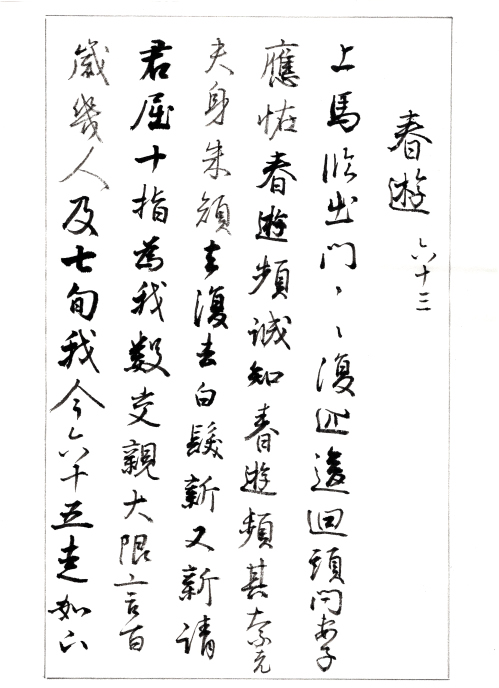 春遊 六十三
上馬臨出門、、復逡迴頭問妻子
應怪春遊頻誠知春遊頻其奈老
夫身朱顏去復去白髮新又新請
君屈十指為我數交親大限言百
歲幾人及七旬我今六十五走如下